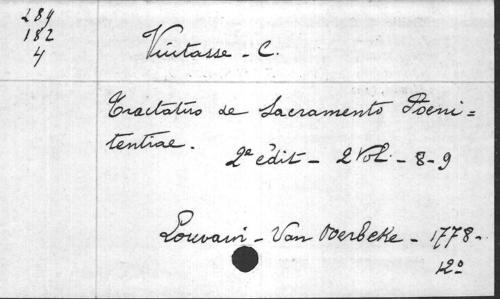 284
182
4
Vuitasse - C.
Tractatus de Sacramento Poeni=
tentiae.
2e édit - 2 Vol. - 8-9
Louvain - Van Overbeke - 1778.
12o